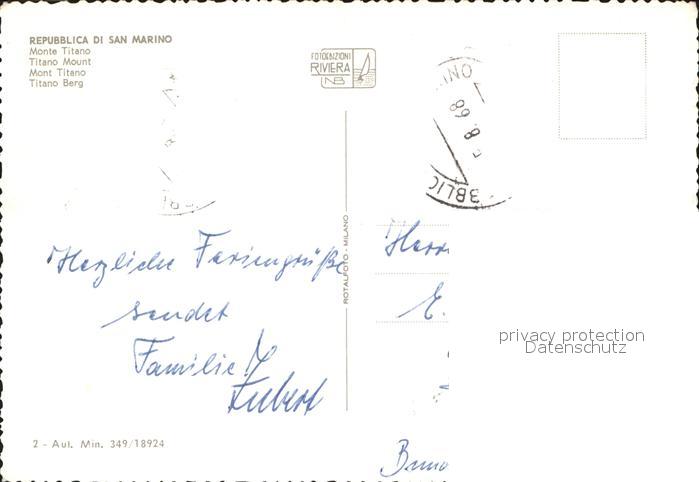 REPUBBLICA DI SAN MARINO
Monte Titano
Titano Mount
Mont Titano
Titano Berg
FOTOEDIZIONI
RIVIERA
NB
8.68
BBLIC
ROTALFOTO - MILANO
Herzliche Feriengrüße
sendet
Familie
Herrn
E.
privacy protection
Datenschutz
2 - Aut. Min. 349/18924